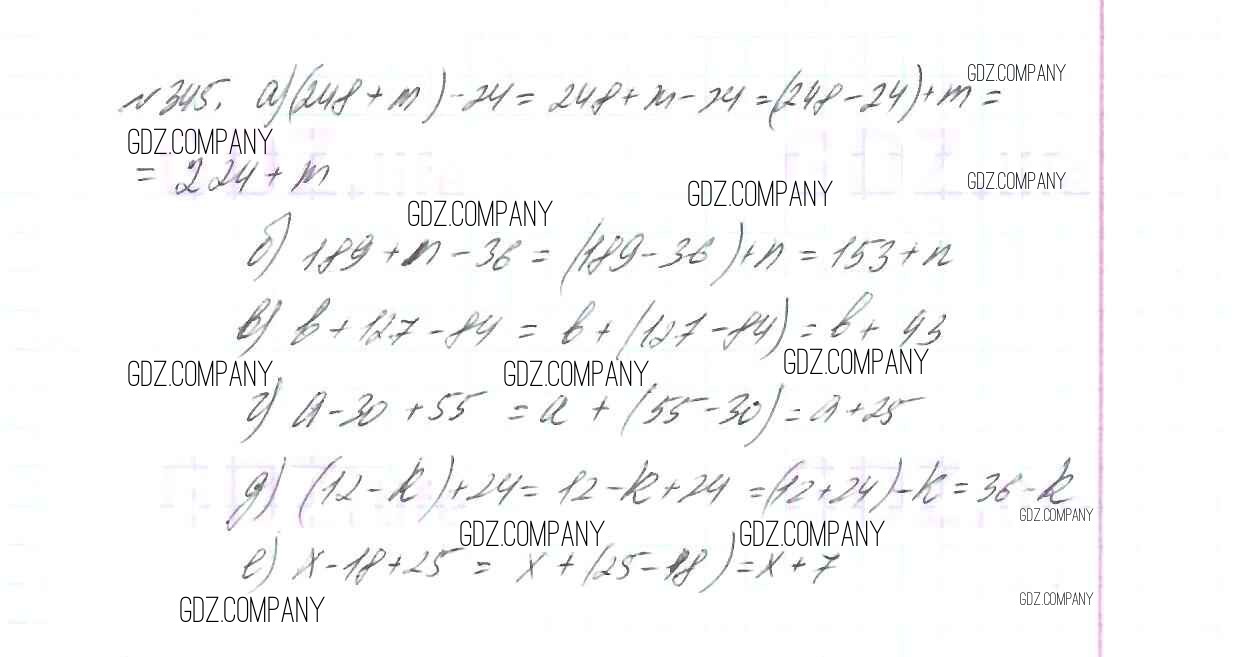 №345. а) (248 + m) - 24 = 248 + m - 24 = (248 - 24) + m =
= 224 + m
б) 189 + n - 36 = (189 - 36) + n = 153 + n
в) b + 127 - 84 = b + (127 - 84) = b + 43
г) a - 30 + 55 = a + (55 - 30) = a + 25
д) (12 - k) + 24 = 12 - k + 24 = (12 + 24) - k = 36 - k
е) x - 18 + 25 = x + (25 - 18) = x + 7
GDZ.COMPANY
GDZ.COMPANY
GDZ.COMPANY
GDZ.COMPANY
GDZ.COMPANY
GDZ.COMPANY
GDZ.COMPANY
GDZ.COMPANY
GDZ.COMPANY
GDZ.COMPANY
GDZ.COMPANY
GDZ.COMPANY
GDZ.COMPANY